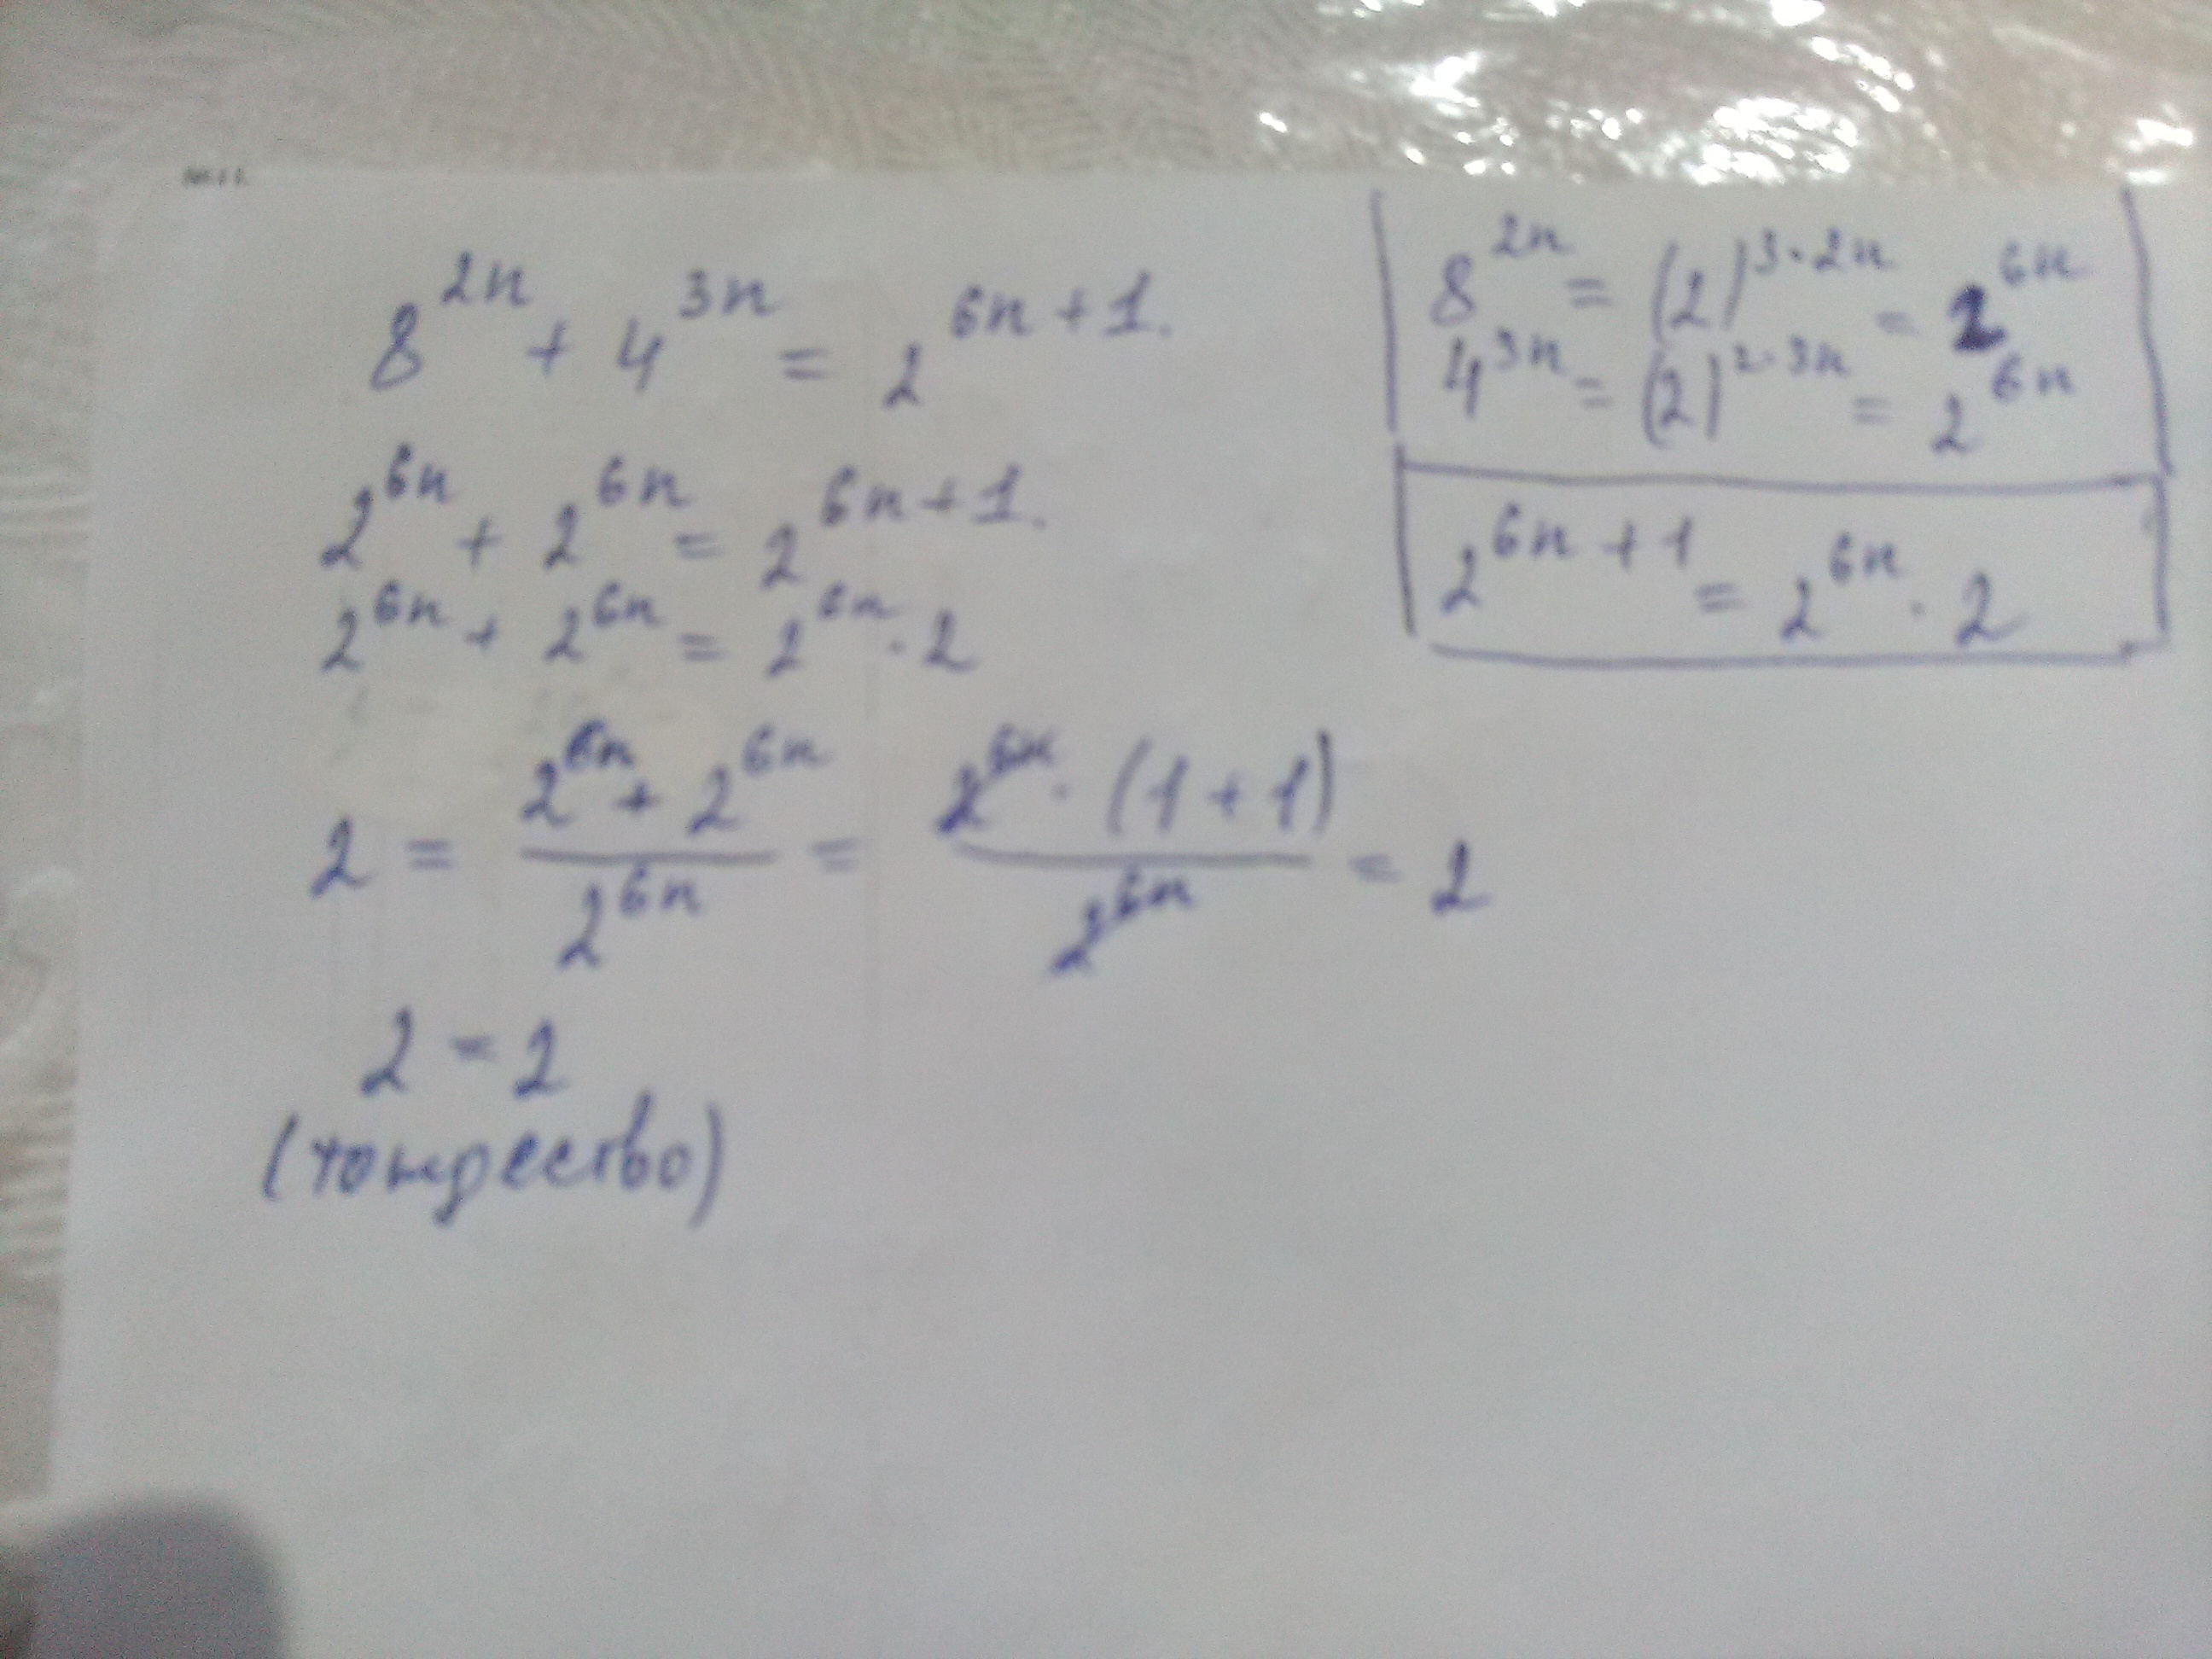 8^{2n} + 4^{3n} = 2^{6n+1}.
2^{6n} + 2^{6n} = 2^{6n+1}.
2^{6n} + 2^{6n} = 2^{6n} · 2
2 = \frac{2^{6n} + 2^{6n}}{2^{6n}} = \frac{2^{6n} · (1+1)}{2^{6n}} = 2
2 = 2
(тождество)
8^{2n} = (2)^{3·2n} = 2^{6n}
4^{3n} = (2)^{2·3n} = 2^{6n}
2^{6n+1} = 2^{6n} · 2